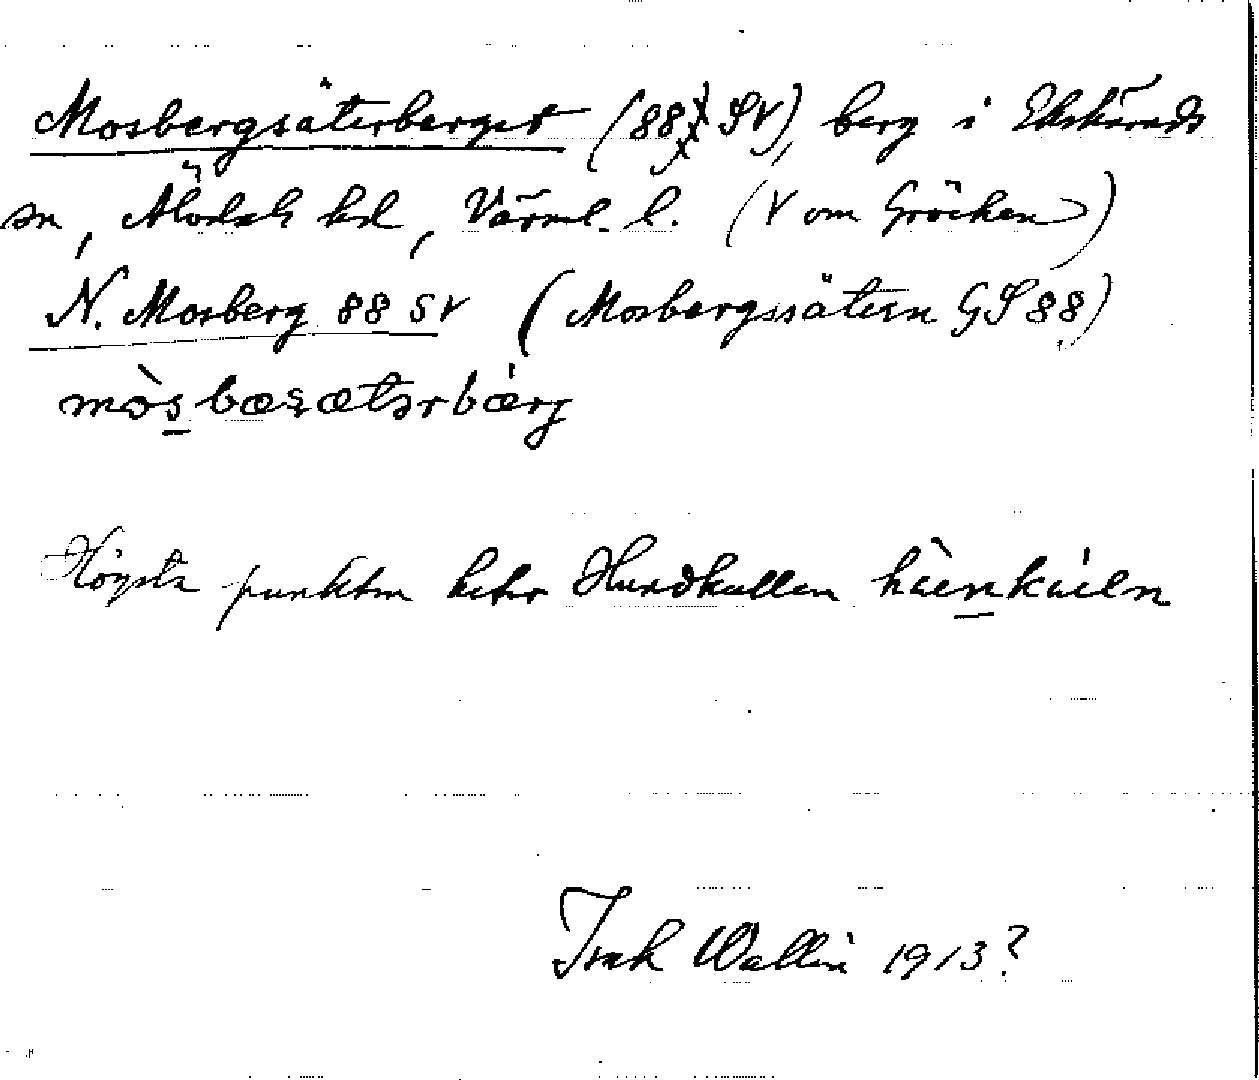 Mosbergsäterberget (88 SV), berg i Ekshärads
sn, Älvdals hd, Värml. l. (V om Gröcken)
N. Mosberg 88 SV (Mosbergssätern GS 88)
mòs̠bæsætərbárg
Högsta punkten heter Hundkullen
Isak Wallin 1913?